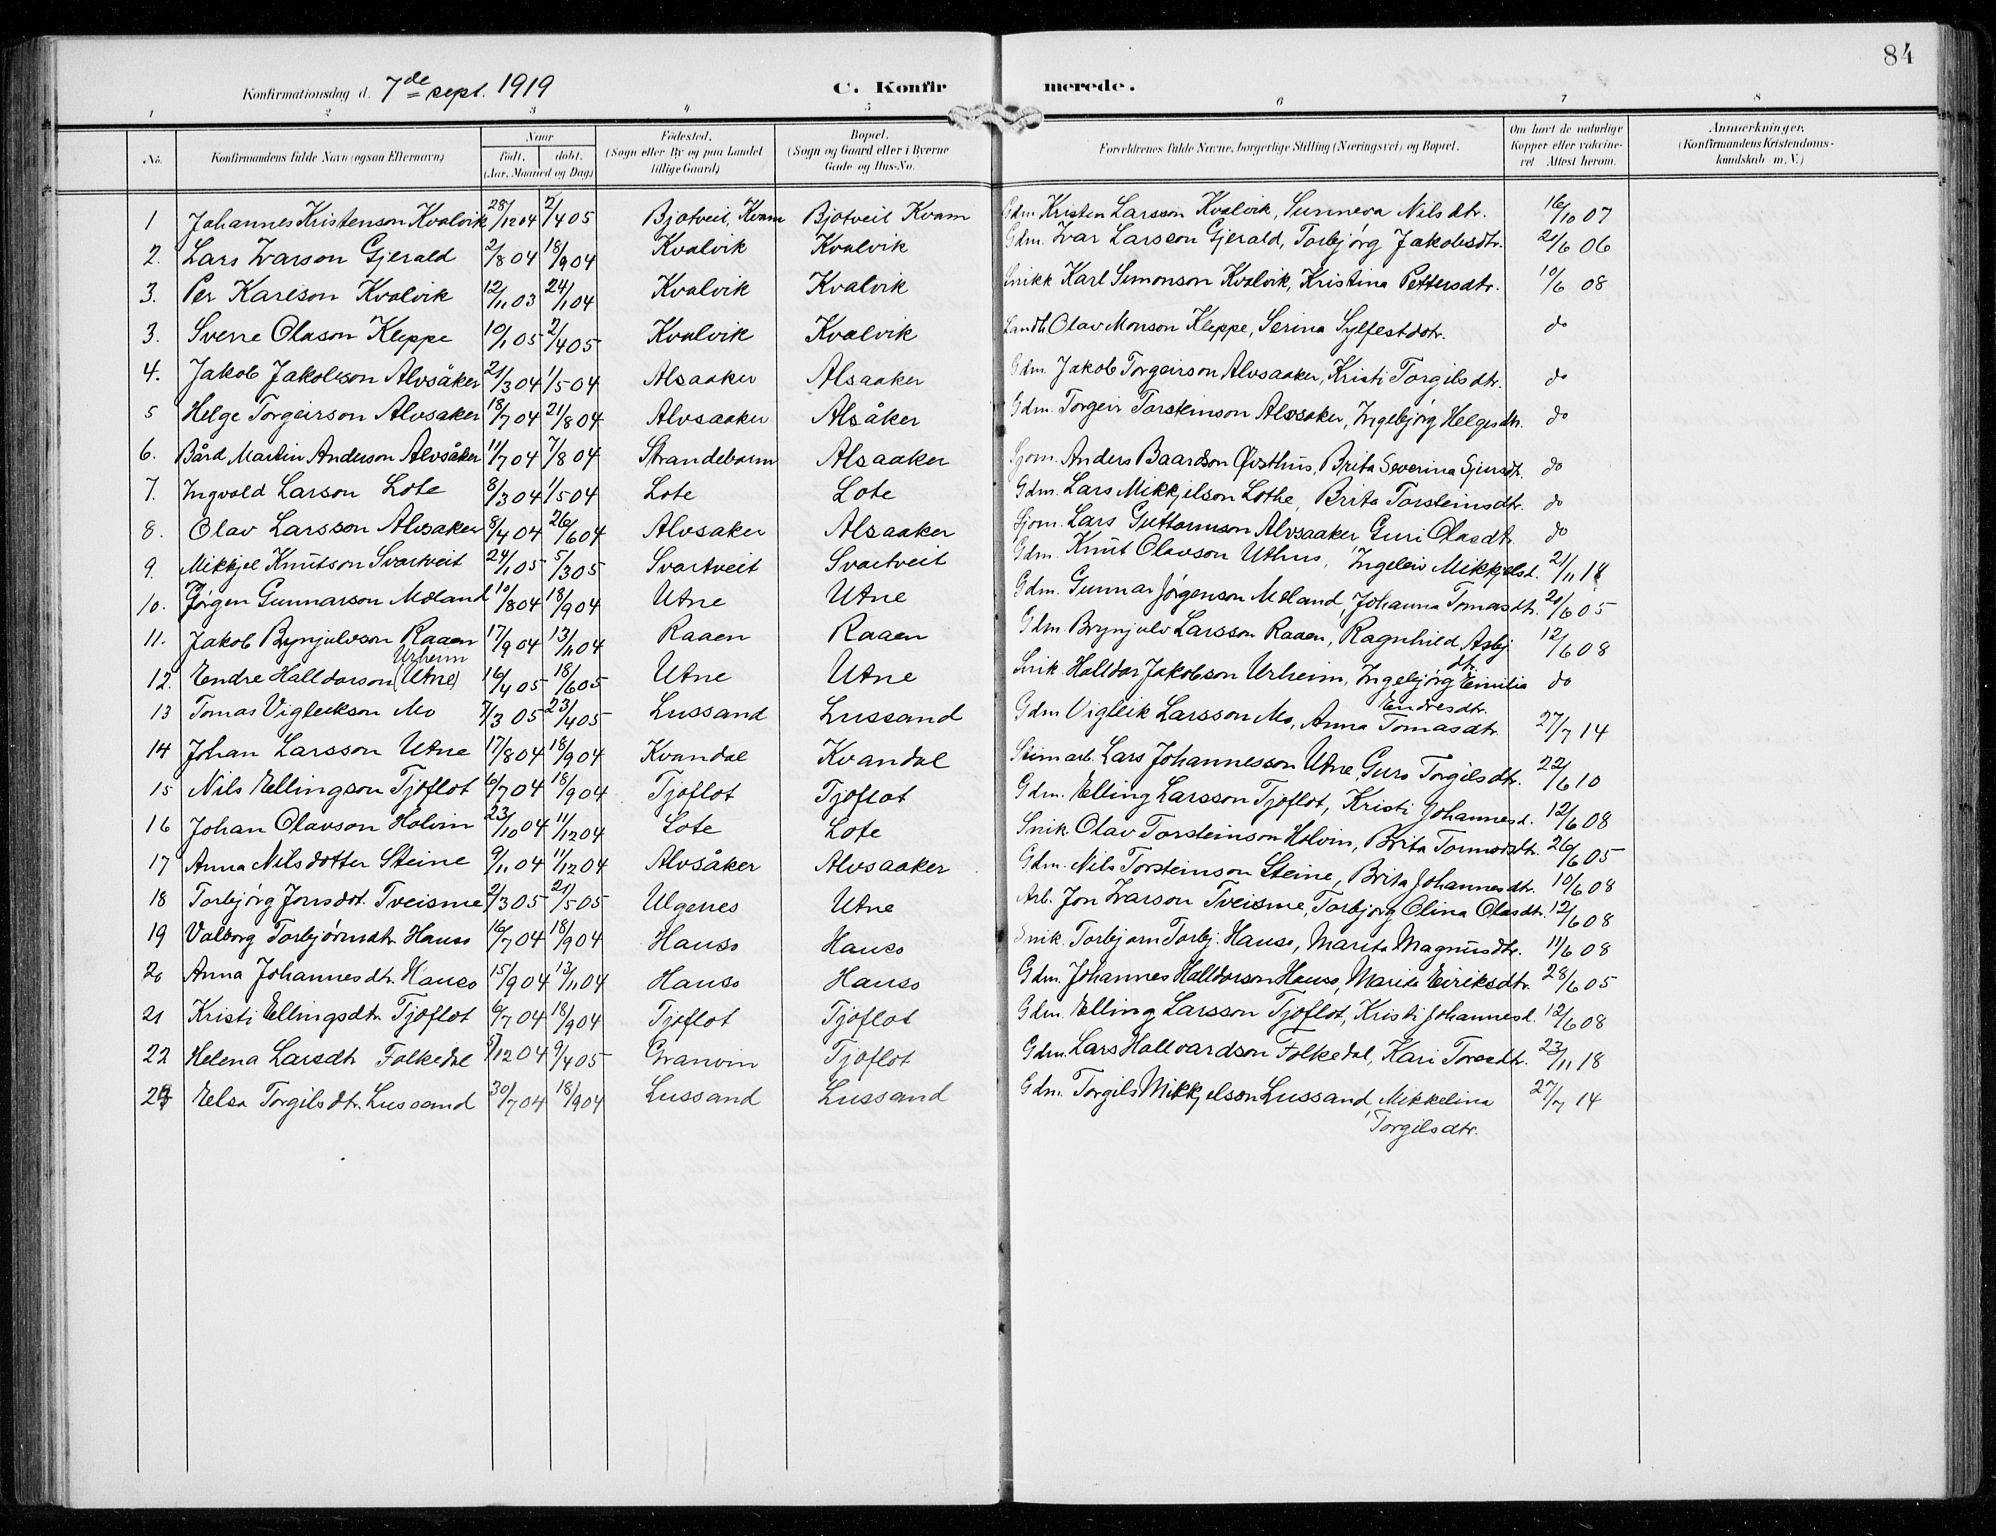 84
Konfirmationsdag d. 7de sept. 1919 C. Konfirmerede.
1 2 3 4 5 6 7 8
No. Konfirmandens fulde Navn (ogsaa Efternavn) Naar født. døbt. (Aar, Maaned og Dag) Fødested. (Sogn eller By og paa Landet tillige Gaard) Bopæl. (Sogn og Gaard eller i Byerne Gade og Hus-No. Forældrenes fulde Navne, borgerlige Stilling (Næringsvei) og Bopæl. Om havt de naturlige Kopper eller vakcineret Attest herom. Anmærkninger. (Konfirmandens Kristendomskundskab m. V.)
1 Johannes Kristenson Kvalvik 28/12 04 2/4 05 Bjotveit, Kvam Bjotveit Kvam Gdm. Kristen Larsson Kvalvik, Sunneva Nilsdtr. 16/10 07
2. Lars Ivarson Gjerald 2/8 04 18/9 04 Kvalvik Kvalvik Gdm. Ivar Larsson Gjerald, Torbjørg Jakobsdtr. 21/6 06
3. Per Karlson Kvalvik 12/11 03 24/1 04 Kvalvik Kvalvik Snikk. Karl Simonson Kvalvik, Kristina Pettersdtr. 10/6 08
3. Sverre Olason Kleppe 10/1 05 2/4 05 Kvalvik Kvalvik Landh. Olav Monson Kleppe, Serina Sylfestdotr. do
4. Jakob Jakobson Alvsåker 21/3 04 1/5 04 Alsaaker Alsaaker Gdm. Jakob Torgeirson Alvsaaker, Kristi Torgilsdtr. do
5 Helge Torgeirson Alvsaker 18/7 04 21/8 04 Alvsaaker Alsåker Gdm. Torgeir Torsteinson Alvsaker, Ingebjørg Helgesdtr. do
6. Bård Martin Anderson Alvsåker 11/7 04 7/8 04 Strandebarm Alsaaker Sjøm. Anders Baardson Øvsthus, Brita Severina Gjersdt. do
7. Ingvald Larson Lote 8/3 04 1/5 04 Lote Lote Gdm. Lars Mikkjelson Lothe, Brita Torsteinsdtr. do
8. Olav Larsson Alvsaker 8/4 04 26/6 04 Alvsaker Alsaaker Sjøm. Lars Guttormson Alvsaaker Guri Olasdtr. do
9. Mikkjel Knutson Svartveit 24/1 05 5/3 05 Svartveit Svartveit Gdm. Knut Olavson Uthus, Ingeleiv Mikkjelsd. 21/11 18
10. Jørgen Gunnarson Mæland 10/8 04 18/9 04 Utne Utne Gdm. Gunnar Jørgenson Mæland, Johanna Tomasdtr. 20/6 05
11. Jakob Brynjulvson Raaen 17/9 04 13/11 04 Raaen Raaen Gdm. Brynjulv Larsson Raaen, Ragnhild Asbj dtr. 12/6 08
12. Endre Halldorson Urheim (Utne) 16/4 05 18/6 05 Utne Utne Snik. Halldor Jakobson Urheim, Ingebjørg Emilia Endresdtr. do
13 Tomas Vigleikson Mo 7/3 05 23/4 05 Lussand Lussand Gdm Vigleik Larsson Mo, Anna Tomasdtr. 27/7 14
14 Johan Larsson Utne 17/8 04 18/9 04 Kvandal Kvandal Steinarb. Lars Johannesson Utne, Guro Torgilsdtr. 22/6 10
15 Nils Ellingson Tjoflot 6/7 04 18/9 04 Tjoflot Tjoflot Gdm. Elling Larsson Tjoflot, Kristi Johannesd. 12/6 08
16 Johan Olavson Holvin 23/10 04 11/12 04 Lote Lote Snik. Olav Torsteinson Holvin, Brita Tormodsdtr. 26/6 05
17 Anna Nilsdotter Steine 9/11 04 11/12 04 Alvsåker Alvsaaker Gdm. Nils Torsteinson Steine, Brita Johannesdtr. 10/6 08
18 Torbjørg Jonsdot. Tveisme 2/3 05 21/5 05 Ulgenes Utne Arb. Jon Ivarson Tveisme, Torbjørg Olina Olasdtr. 12/6 08
19 Valborg Torbjørnsdtr. Hauso 16/7 04 18/9 04 Hauso Hauso Snik. Torbjørn Torbj. Hauso, Marita Magnusdtr. 11/6 08
20 Anna Johannesdtr. Hauso 15/9 04 13/11 04 Hauso Hauso Gdm. Johannes Halldorson Hauso, Marita Eiriksdtr. 28/6 05
21 Kristi Ellingsdtr. Tjoflot 6/7 04 18/9 04 Tjoflot Tjoflot Gdm. Elling Larsson Tjoflot, Kristi Johannesd. 12/6 08
22 Helena Larsdtr. Folkedal 5/12 04 9/4 05 Granvin Tjoflot Gdm. Lars Hallvardson Folkedal, Kari Toresdtr. 23/11 18
23 Elsa Torgilsdtr. Lussand 30/7 04 18/9 04 Lussand Lussand Gdm. Torgils Mikkjelson Lussand, Mikkelina Torgilsdtr. 27/7 14